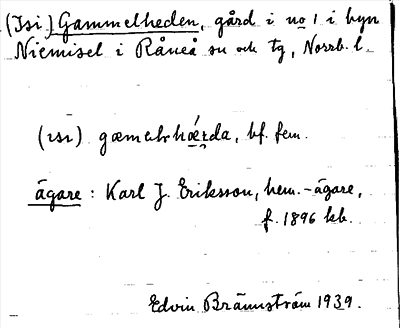 (Isi) Gammelheden, gård i no 1 i byn
Niemisel i Råneå sn och tg, Norrb. l.
(ısı) gæmelhǽda, bf. fem.
ägare: Karl J. Eriksson, hem.-ägare,
f. 1896 kb.
Edvin Brännström 1939.